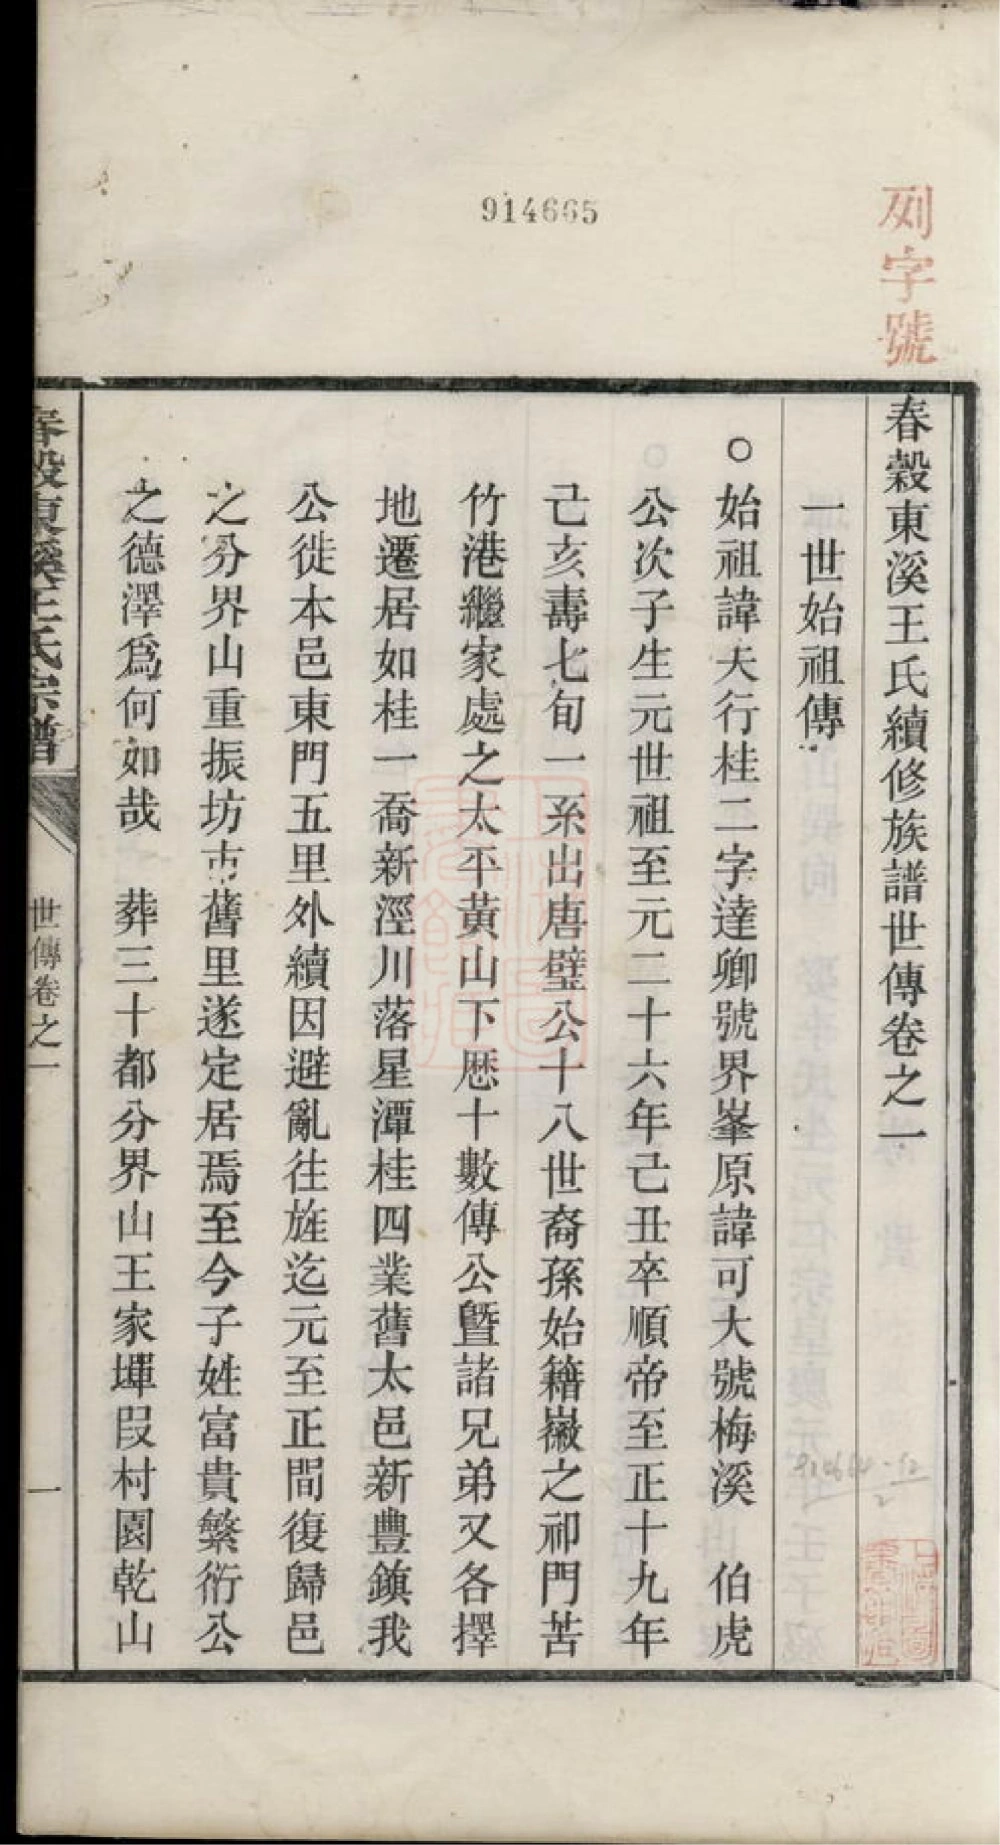 914665
列字號
春穀東溪王氏續修族譜世傳卷之一
一世始祖傳
○始祖諱天行桂二字達卿號界峯原諱可大號梅溪 伯虎
公次子生元世祖至元二十六年己丑卒順帝至正十九年
己亥壽七旬一系出唐璧公十八世裔孫始籍徽之祁門苦
竹港繼家處之太平黃山下歷十數傳公暨諸兄弟又各擇
地遷居如桂一喬新涇川落星潭桂四業舊太邑新豐鎮我
公徙本邑東門五里外續因避亂往旌迄元至正間復歸邑
之分界山重振坊市舊里遂定居焉至今子姓富貴繁衍公
之德澤爲何如哉 葬三十都分界山王家墠叚村園乾山
春穀東溪王氏宗譜
世傳卷之一
一